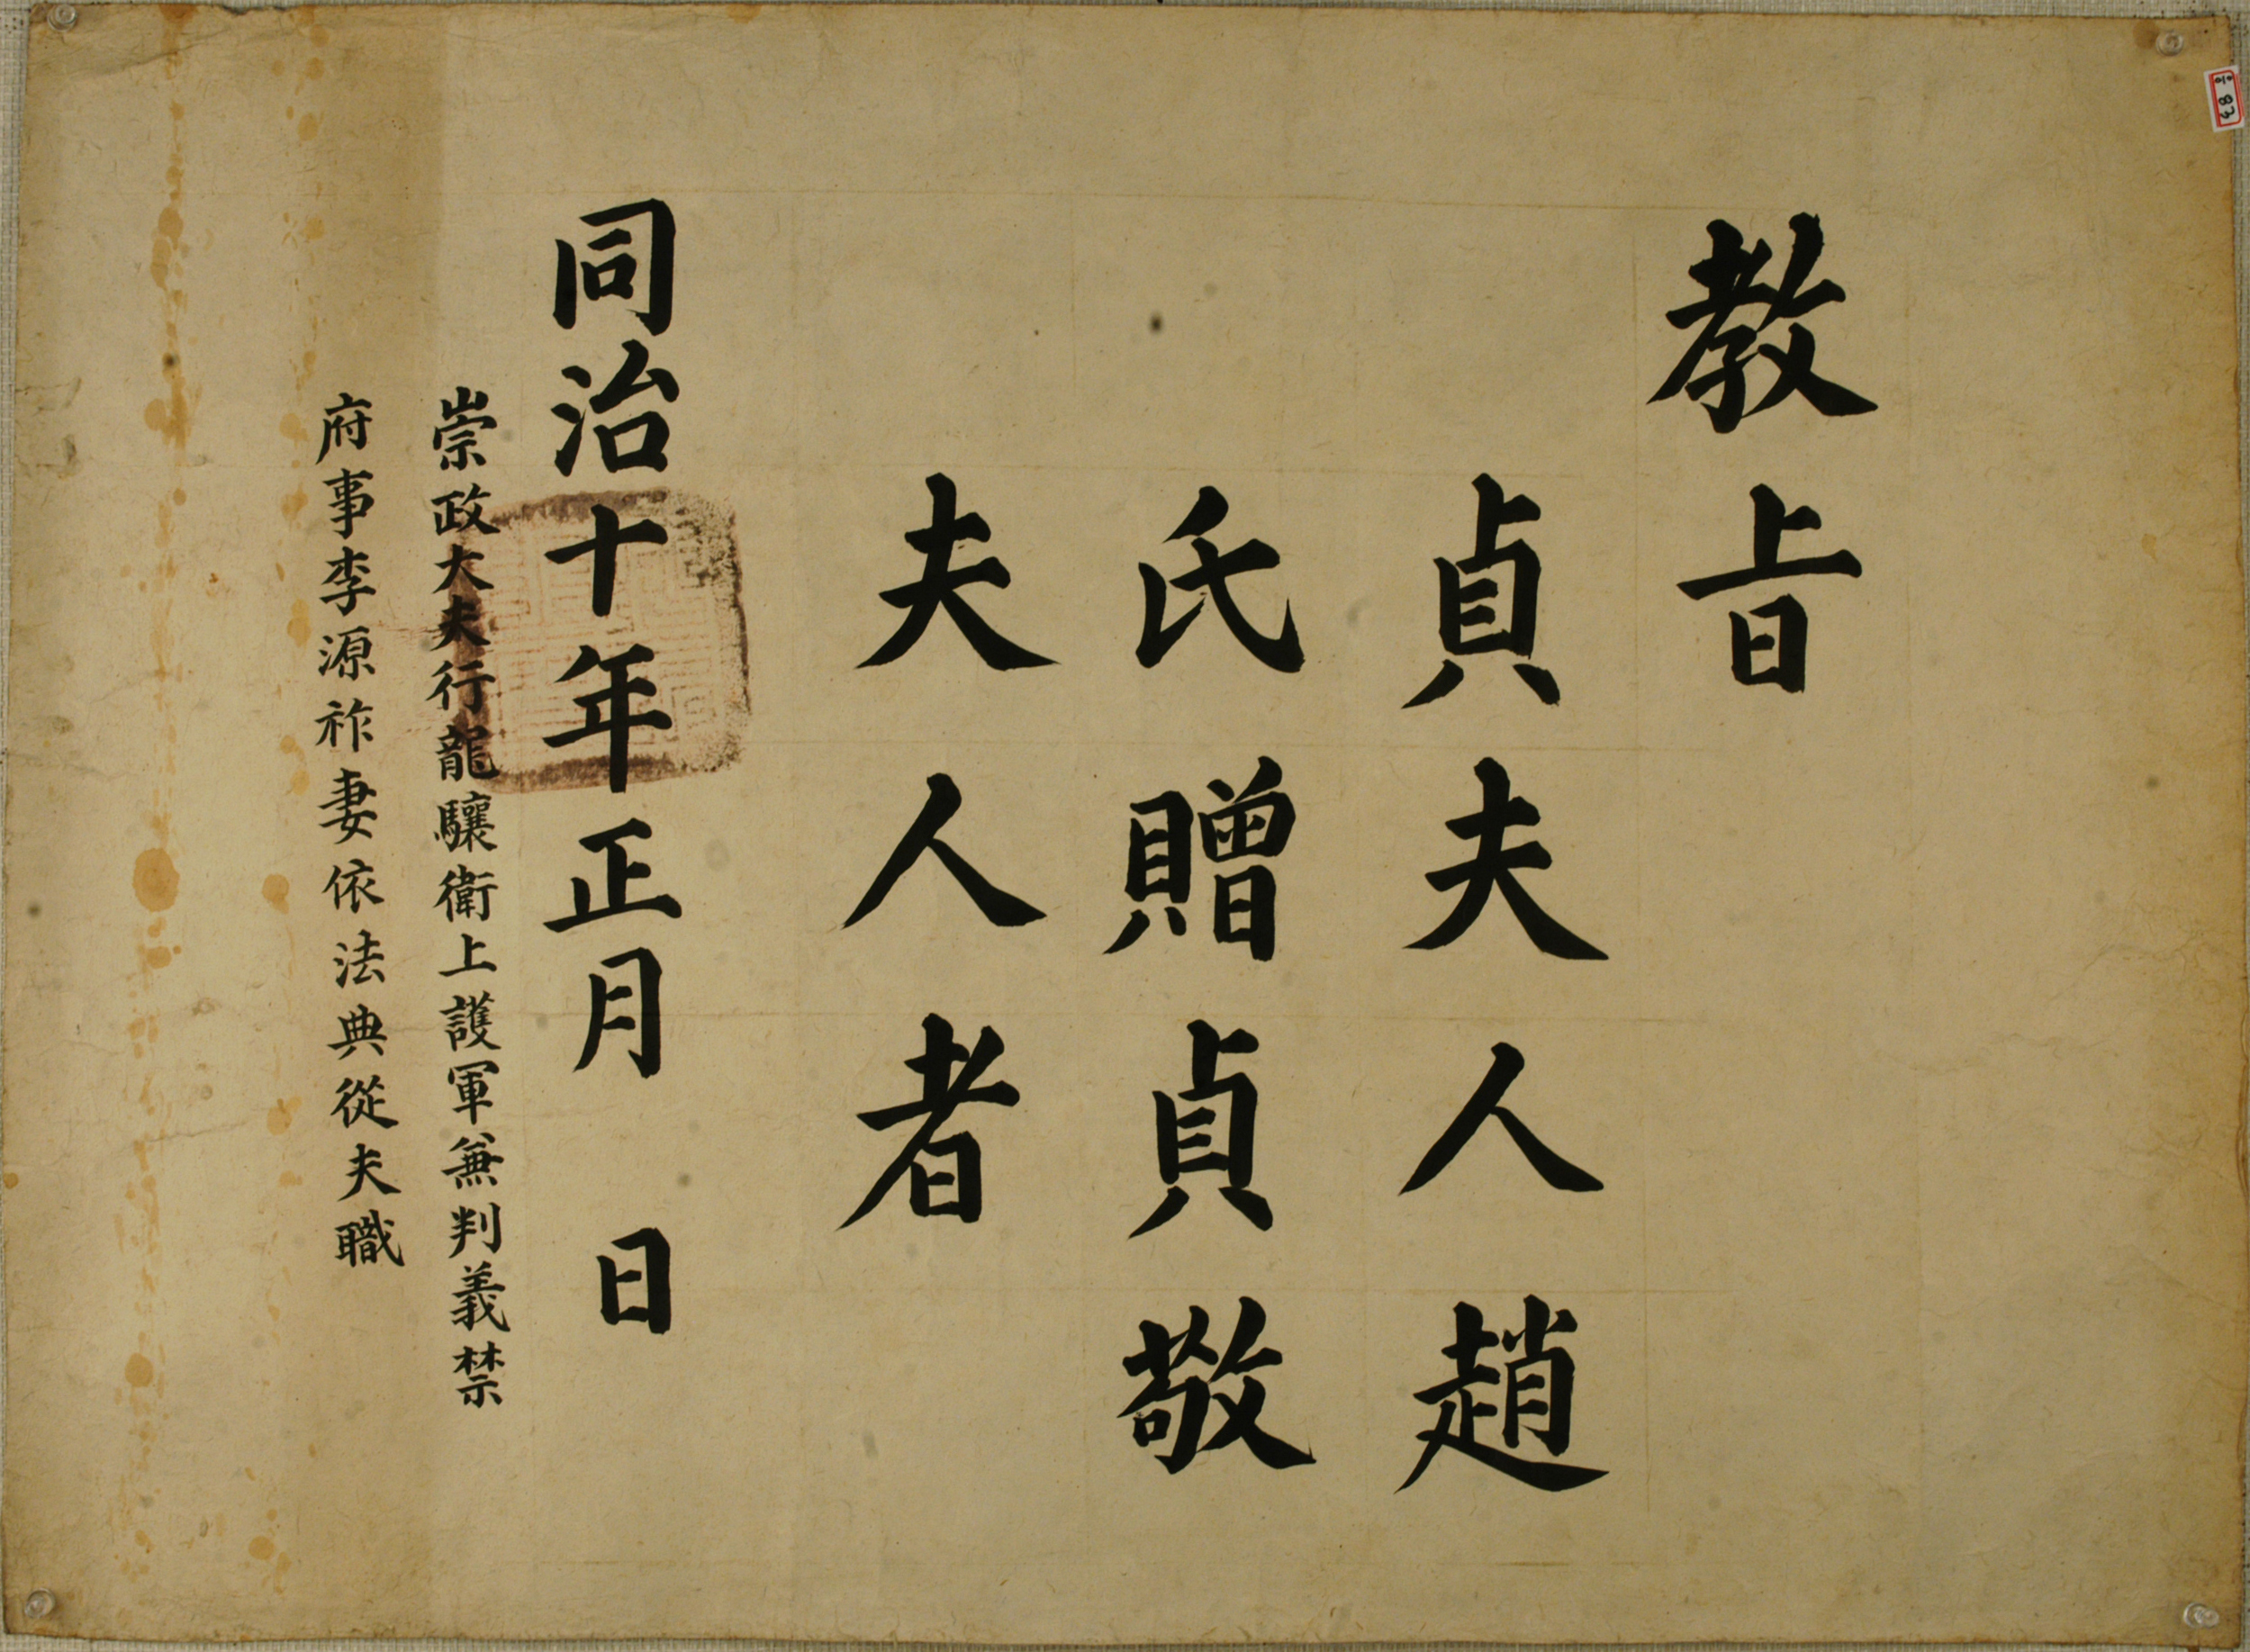 教旨
貞夫人趙
氏贈貞敬
夫人者
同治十年正月 日
崇政大夫行龍驤衛上護軍兼判義禁
府事李源祚妻依法典從夫職
83